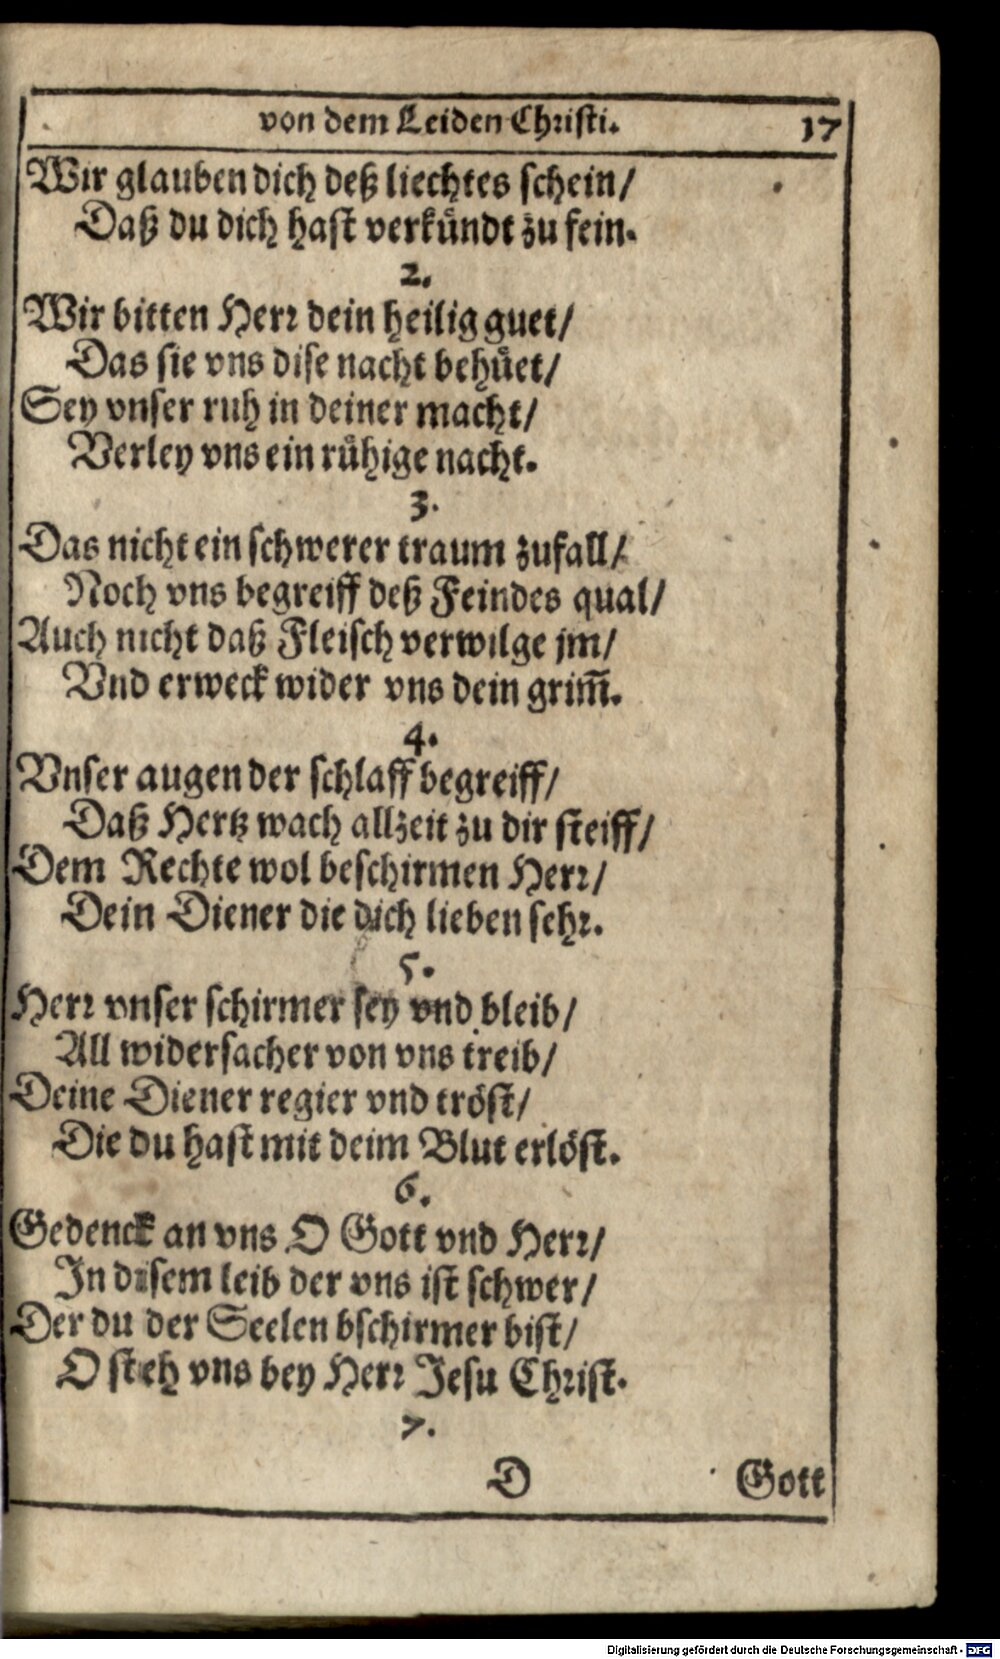 von dem Leiden Christi. 17
Wir glauben dich deß liechtes schein/
Daß du dich hast verkuͤndt zu sein.
2.
Wir bitten Herr dein heilig guet/
Das sie vns dise nacht behuͤet/
Sey vnser ruh in deiner macht/
Verley vns ein ruͤhige nacht.
3.
Das nicht ein schwerer traum zufall/
Noch vns begreiff deß Feindes qual/
Auch nicht daß Fleisch verwilge jm/
Vnd erweck wider vns dein grim̄.
4.
Vnser augen der schlaff begreiff/
Daß Hertz wach allzeit zu dir steiff/
Dem Rechte wol beschirmen Herr/
Dein Diener die dich lieben sehr.
5.
Herr vnser schirmer sey vnd bleib/
All widersacher von vns treib/
Deine Diener regier vnd troͤst/
Die du hast mit deim Blut erloͤst.
6.
Gedenck an vns O Gott vnd Herr/
In disem leib der vns ist schwer/
Der du der Seelen bschirmer bist/
O steh vns bey Herr Jesu Christ.
7.
D Gott
Digitalisierung gefördert durch die Deutsche Forschungsgemeinschaft - DFG